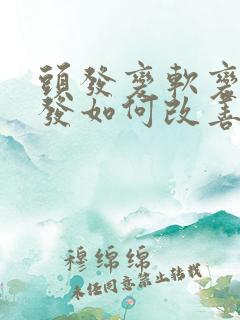 頭發變軟變
發如何改善
穆绵绵
未经同意禁止转载